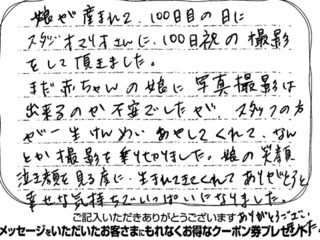 娘が産まれて、100日目の日に
スタジオマリオさんに、100日祝の撮影
をして頂きました。
まだ赤ちゃんの娘に写真撮影は
出来るのか不安でしたが、スタッフの方
が一生けんめいあやしてくれて、なん
とか撮影を乗りきりました。娘の笑顔
泣き顔を見る度に、生まれてきてくれてありがとうと
幸せな気持ちでいっぱいになりました。
ご記入いただきありがとうございます ありがとうござい
メッセージをいただいたお客さまにもれなくお得なクーポン券プレゼント